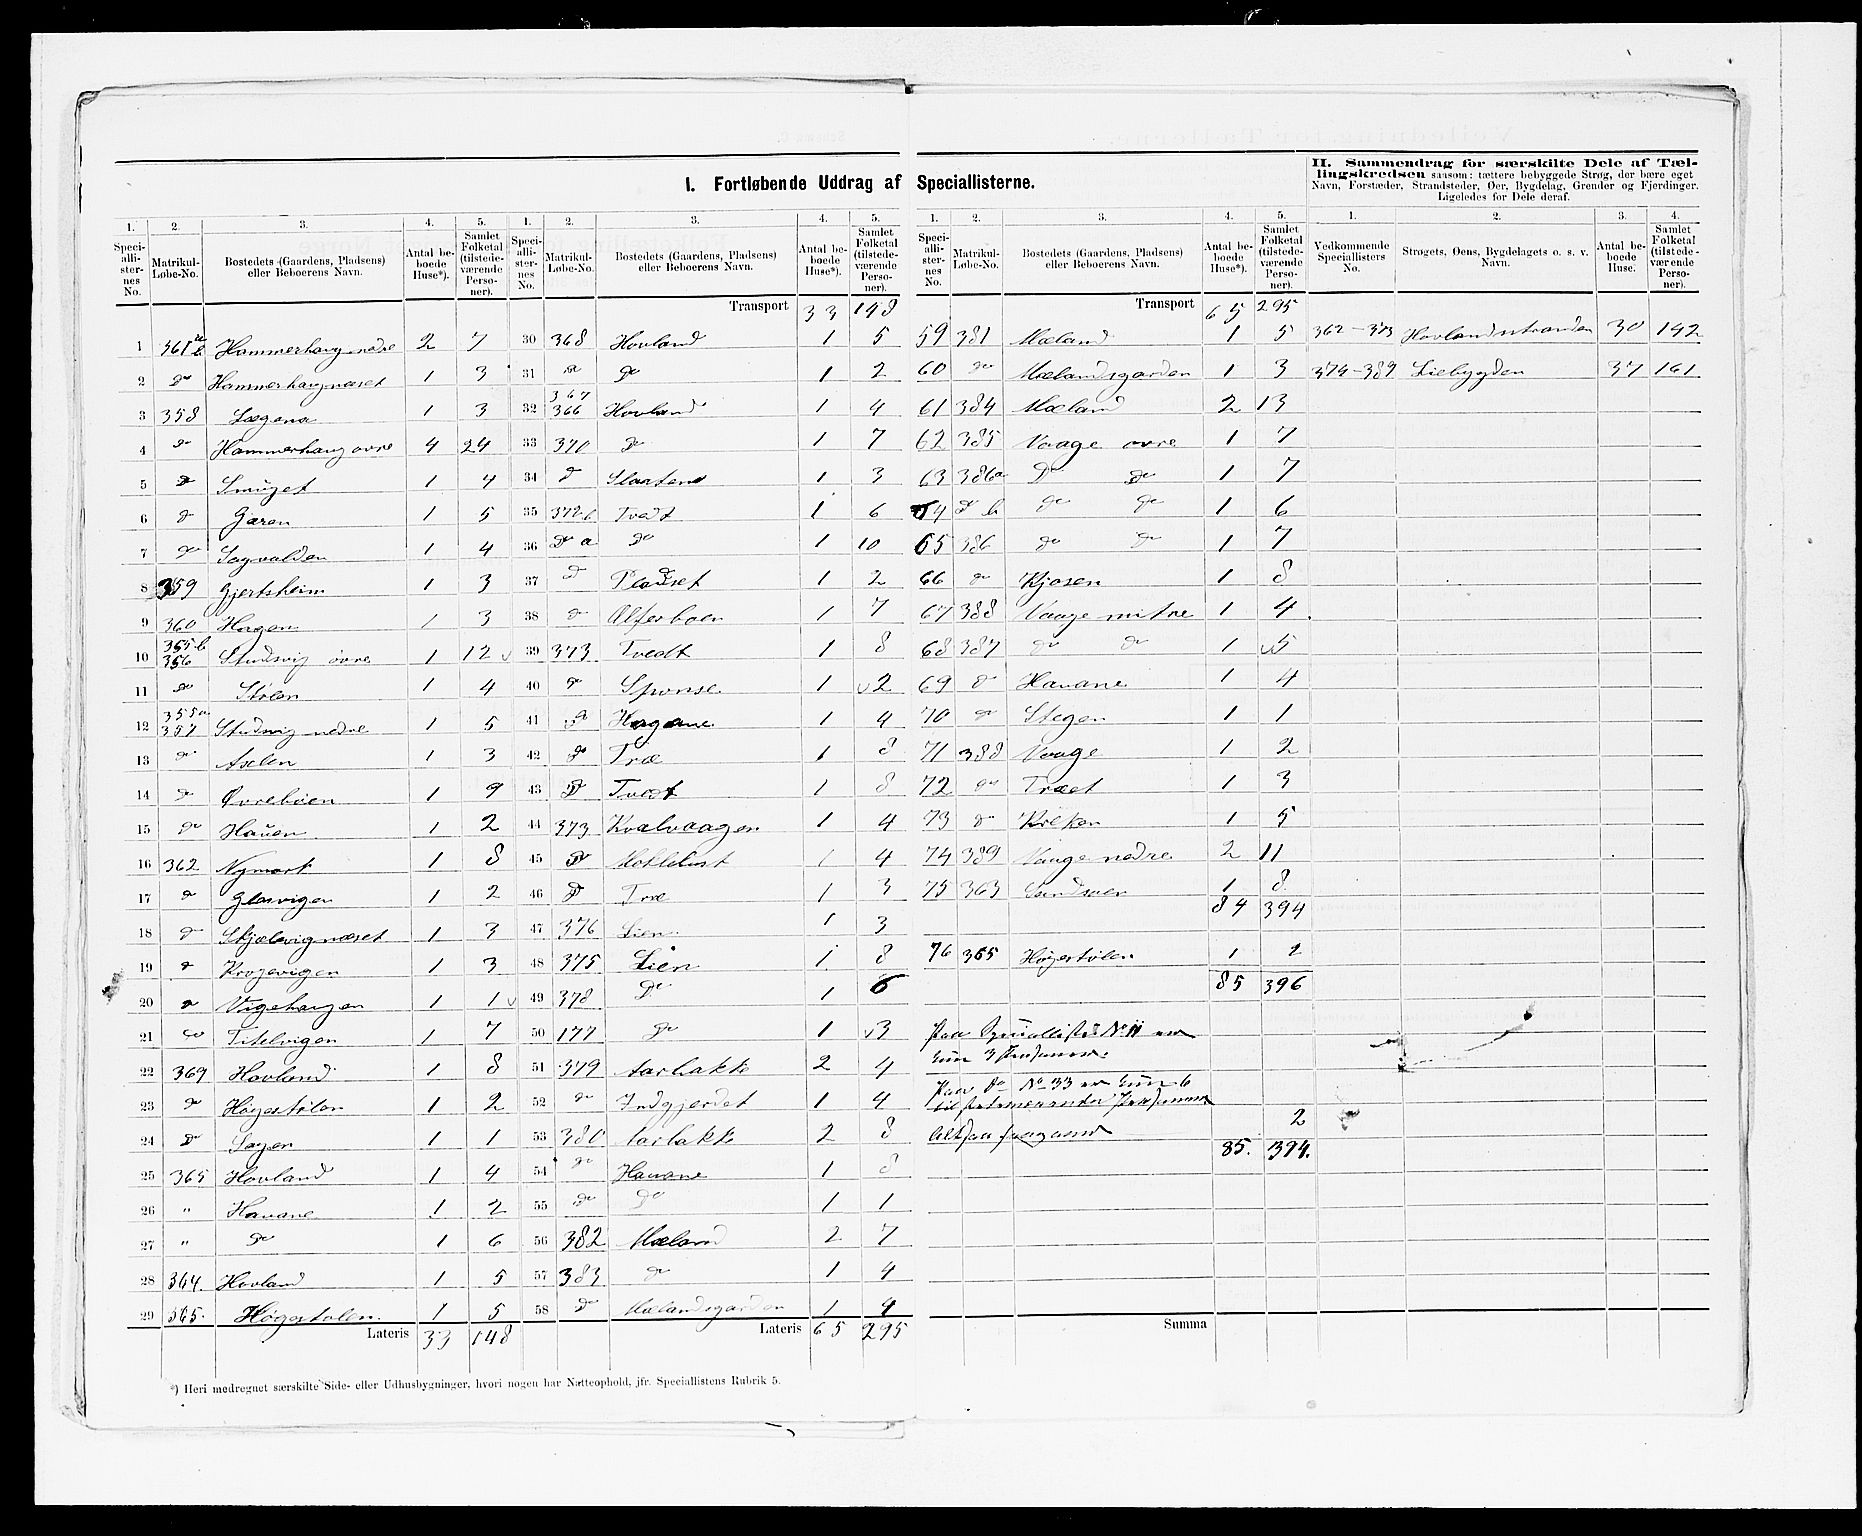 I. Fortløbende Uddrag af Speciallisterne.
II. Sammendrag for særskilte Dele af Tæl-
lingskredsen saasom: tættere bebyggede Strøg, der bære eget
Navn, Forstæder, Strandsteder, Øer, Bygdelag, Grender og Fjerdinger.
Ligeledes for Dele deraf.
1. 2. 3. 4. 5. 1. 2. 3. 4. 5. 1. 2. 3. 4. 5. 1. 2. 3. 4.
Speci-alli-ster-nes No. Matrikul-Løbe-No. Bostedets (Gaardens, Pladsens) eller Beboerens Navn. Antal be-boede Huse*). Samlet Folketal (tilstede-værende Perso-ner).
Speci-alli-ster-nes No. Matrikul-Løbe-No. Bostedets (Gaardens, Pladsens) eller Beboerens Navn. Antal be-boede Huse*). Samlet Folketal (tilstede-værende Perso-ner).
Speci-alli-ster-nes No. Matrikul-Løbe-No. Bostedets (Gaardens, Pladsens) eller Beboerens Navn. Antal be-boede Huse*). Samlet Folketal (tilstede-værende Perso-ner).
Vedkommende Speciallisters No. Strøgets, Øens, Bygdelagets o. s. v. Navn. Antal be-boede Huse. Samlet Folketal (tilstede-værende Perso-ner).
1 361 Hammerhaug nedre 2 7
2 do Hammerhaugnæset 1 3
3 358 Lægena 1 3
4 do Hammerhaug øvre 4 24
5 do Smuget 1 4
6 do Gjæren 1 5
7 do Sagvolden 1 4
8 359 Gjertsheim 1 3
9 360 Hagen 1 3
10 355 b 356 Studsvig øvre 1 12
11 do Stølen 1 4
12 355 a 357 Studsvig nedre 1 5
13 do Aselen 1 3
14 do Øvrebøen 1 9
15 do Haüen 1 2
16 362 Nymark 1 8
17 do Glasvigen 1 2
18 do Skjælevignæset 1 3
19 do Krogevigen 1 3
20 do Vigehaugen 1 1
21 do Titelvigen 1 7
22 369 Hovland 1 8
23 do Høgestølen 1 2
24 do Sagen 1 1
25 365 Hovland 1 4
26 " Havane 1 2
27 " do 1 6
28 364. Hovland 1 5
29 365. Høgestølen. 1 5
Lateris 33 148
Transport 33 148
30 368 Hovland 1 5
31 do do 1 2
32 367 366 Hovland 1 4
33 370 do 1 7
34 do Slaatene 1 3
35 372 b Tvedt 1 6
36 do a do 1 10
37 do Pladset 1 2
38 do 1 7
39 373 Tvedt 1 8
40 do Sponse 1 2
41 do Hagane 1 4
42 do Træ 1 8
43 do Tvedt 1 8
44 373 Kvalvaagen 1 4
45 do 1 4
46 do Træ 1 3
47 376 Lien. 1 3
48 375 Lien 1 8
49 378 do 1 6
50 177 do 1 3
51 379 Aarhakke 2 4
52 do Indgjerdet 1 4
53 380 Aarhakke 2 8
54 do Havane 1 8
55 do do 1 1
56 382 Mæland 2 7
57 383 do 1 4
58 do Mælandsgarden 1 4
Lateris 65 295
Transport 65 295
59 381 Mæland 1 5
60 do Mælandsgarden 1 3
61 384 Mæland 2 13
62 385 Vaage øvre 1 7
63 386a do do 1 7
64 do b do do 1 6
65 386 do do 1 7
66 do Kjosen 1 8
67 388 Vaage mitre 1 4
68 387 do do 1 5
69 do Havane 1 4
70 do Stegen 1 1
71 388 Vaage 1 2
72 do Træet 1 3
73 do Kriken 1 5
74 389 Vaage nedre 2 11
75 363 1 8
84 394
76 365 Høgestølen 1 2
85 396
paa Speciallisten No 11 er
kun 3 Personer.
Paa do No 33 er kun 6
tilstedeværende Personer
Altsaa fragaaende 2
85. 394.
Summa
362-373 Hovlandsstranden 30 142
374-389 Liebygden 37 161
*) Heri medregnet særskilte Side- eller Udhusbygninger, hvori nogen har Natteophold, jfr. Speciallistens Rubrik 5.